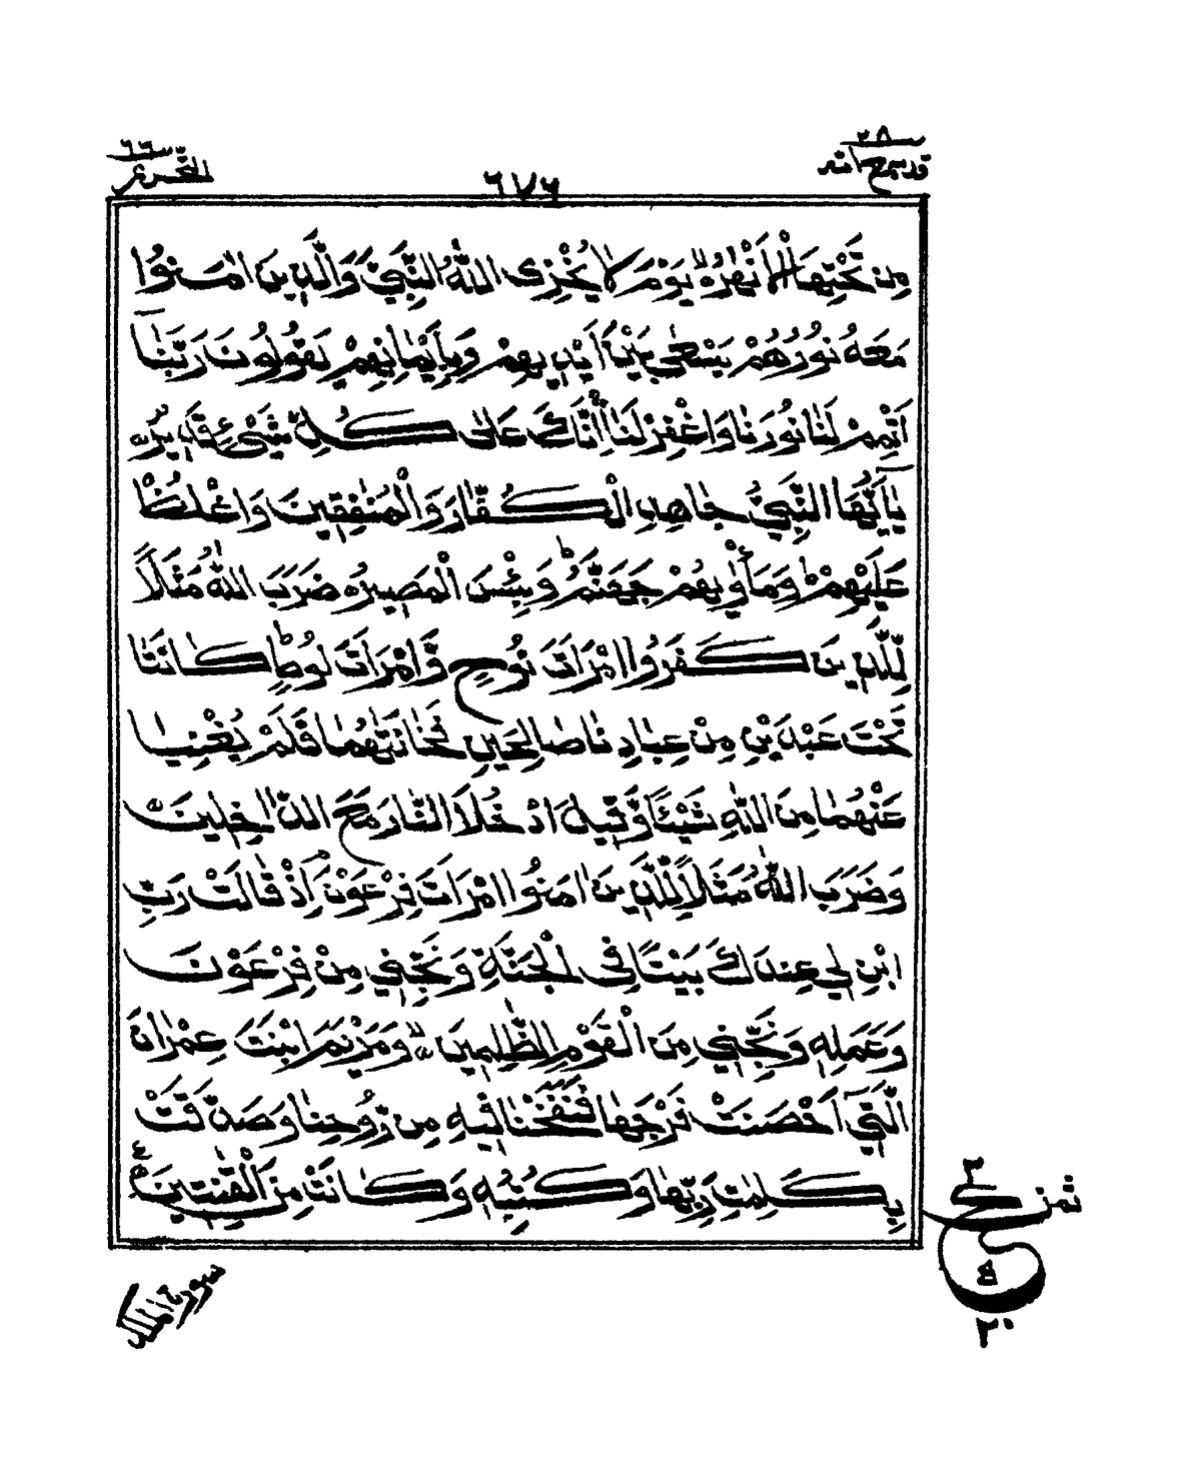 ٢٨
قد سمع الله
٦٧٦
٦٦
التحريم
مِن تَحْتِهَا الْأَنْهٰرُ يَوْمَ لَا يُخْزِى اللّٰهُ النَّبِيَّ وَالَّذِينَ اٰمَنُوا
مَعَهُ نُورُهُمْ يَسْعٰى بَيْنَ أَيْدِيهِمْ وَبِأَيْمٰانِهِمْ يَقُولُونَ رَبَّنَآ
أَتْمِمْ لَنٰا نُورَنٰا وَاغْفِرْ لَنَآ إِنَّكَ عَلٰى كُلِّ شَيْءٍ قَدِيرٌ
يٰٓأَيُّهَا النَّبِيُّ جٰاهِدِ الْكُفّٰارَ وَالْمُنٰفِقِينَ وَاغْلُظْ
عَلَيْهِمْ وَمَأْوٰيهُمْ جَهَنَّمُ وَبِئْسَ الْمَصِيرُ ضَرَبَ اللّٰهُ مَثَلًا
لِّلَّذِينَ كَفَرُوا امْرَاَتَ نُوحٍ وَّامْرَاَتَ لُوطٍ كٰانَتٰا
تَحْتَ عَبْدَيْنِ مِنْ عِبٰادِنٰا صٰالِحَيْنِ فَخٰانَتٰهُمٰا فَلَمْ يُغْنِيٰا
عَنْهُمٰا مِنَ اللّٰهِ شَيْئًا وَّقِيلَ ادْخُلَا النّٰارَ مَعَ الدّٰاخِلِينَ
وَضَرَبَ اللّٰهُ مَثَلًا لِّلَّذِينَ اٰمَنُوا امْرَاَتَ فِرْعَوْنَ إِذْ قٰالَتْ رَبِّ
ابْنِ لِي عِندَكَ بَيْتًا فِى الْجَنَّةِ وَنَجِّنِي مِنْ فِرْعَوْنَ
وَعَمَلِهِ وَنَجِّنِي مِنَ الْقَوْمِ الظّٰلِمِينَ وَمَرْيَمَ ابْنَتَ عِمْرٰانَ
الَّتِيٓ أَحْصَنَتْ فَرْجَهٰا فَنَفَخْنٰا فِيهِ مِن رُّوحِنٰا وَصَدَّقَتْ
بِكَلِمٰتِ رَبِّهٰا وَكُتُبِهِ وَكٰانَتْ مِنَ الْقٰنِتِينَ
ثمن
٢٠
سورة الملك